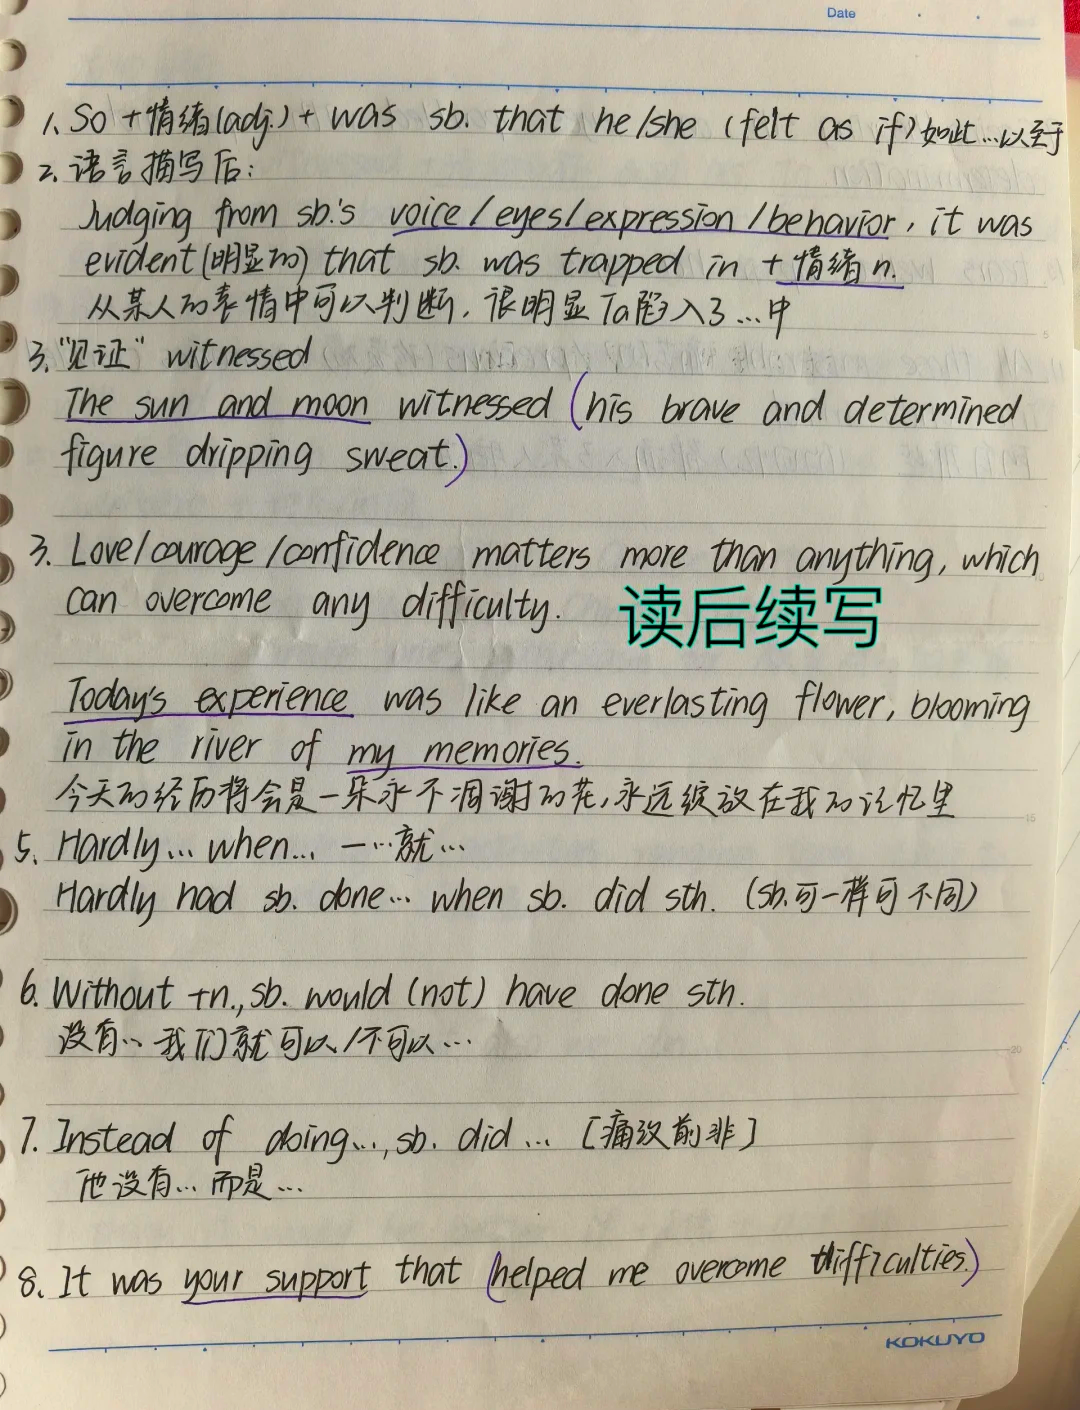 Date
1. So + 情绪(adj.) + was sb. that he/she (felt as if) 如此…以至于
2. 语言描写后:
Judging from sb.'s voice/eyes/expression/behavior, it was
evident(明显的) that sb. was trapped in + 情绪n.
从某人的表情中可以判断, 很明显Ta陷入了…中
3. "见证" witnessed
The sun and moon witnessed (his brave and determined
figure dripping sweat.)
3. Love/courage/confidence matters more than anything, which
can overcome any difficulty.
读后续写
Today's experience was like an everlasting flower, blooming
in the river of my memories.
今天的经历将会是一朵永不凋谢的花,永远绽放在我的记忆里
5. Hardly... when... 一…就…
Hardly had sb. done... when sb. did sth. (sb.可一样可不同)
6. Without +n., sb. would (not) have done sth.
没有… 我们就可以/不可以…
7. Instead of doing..., sb. did ... [痛改前非]
他没有… 而是…
8. It was your support that (helped me overcome difficulties.)
KOKUYO